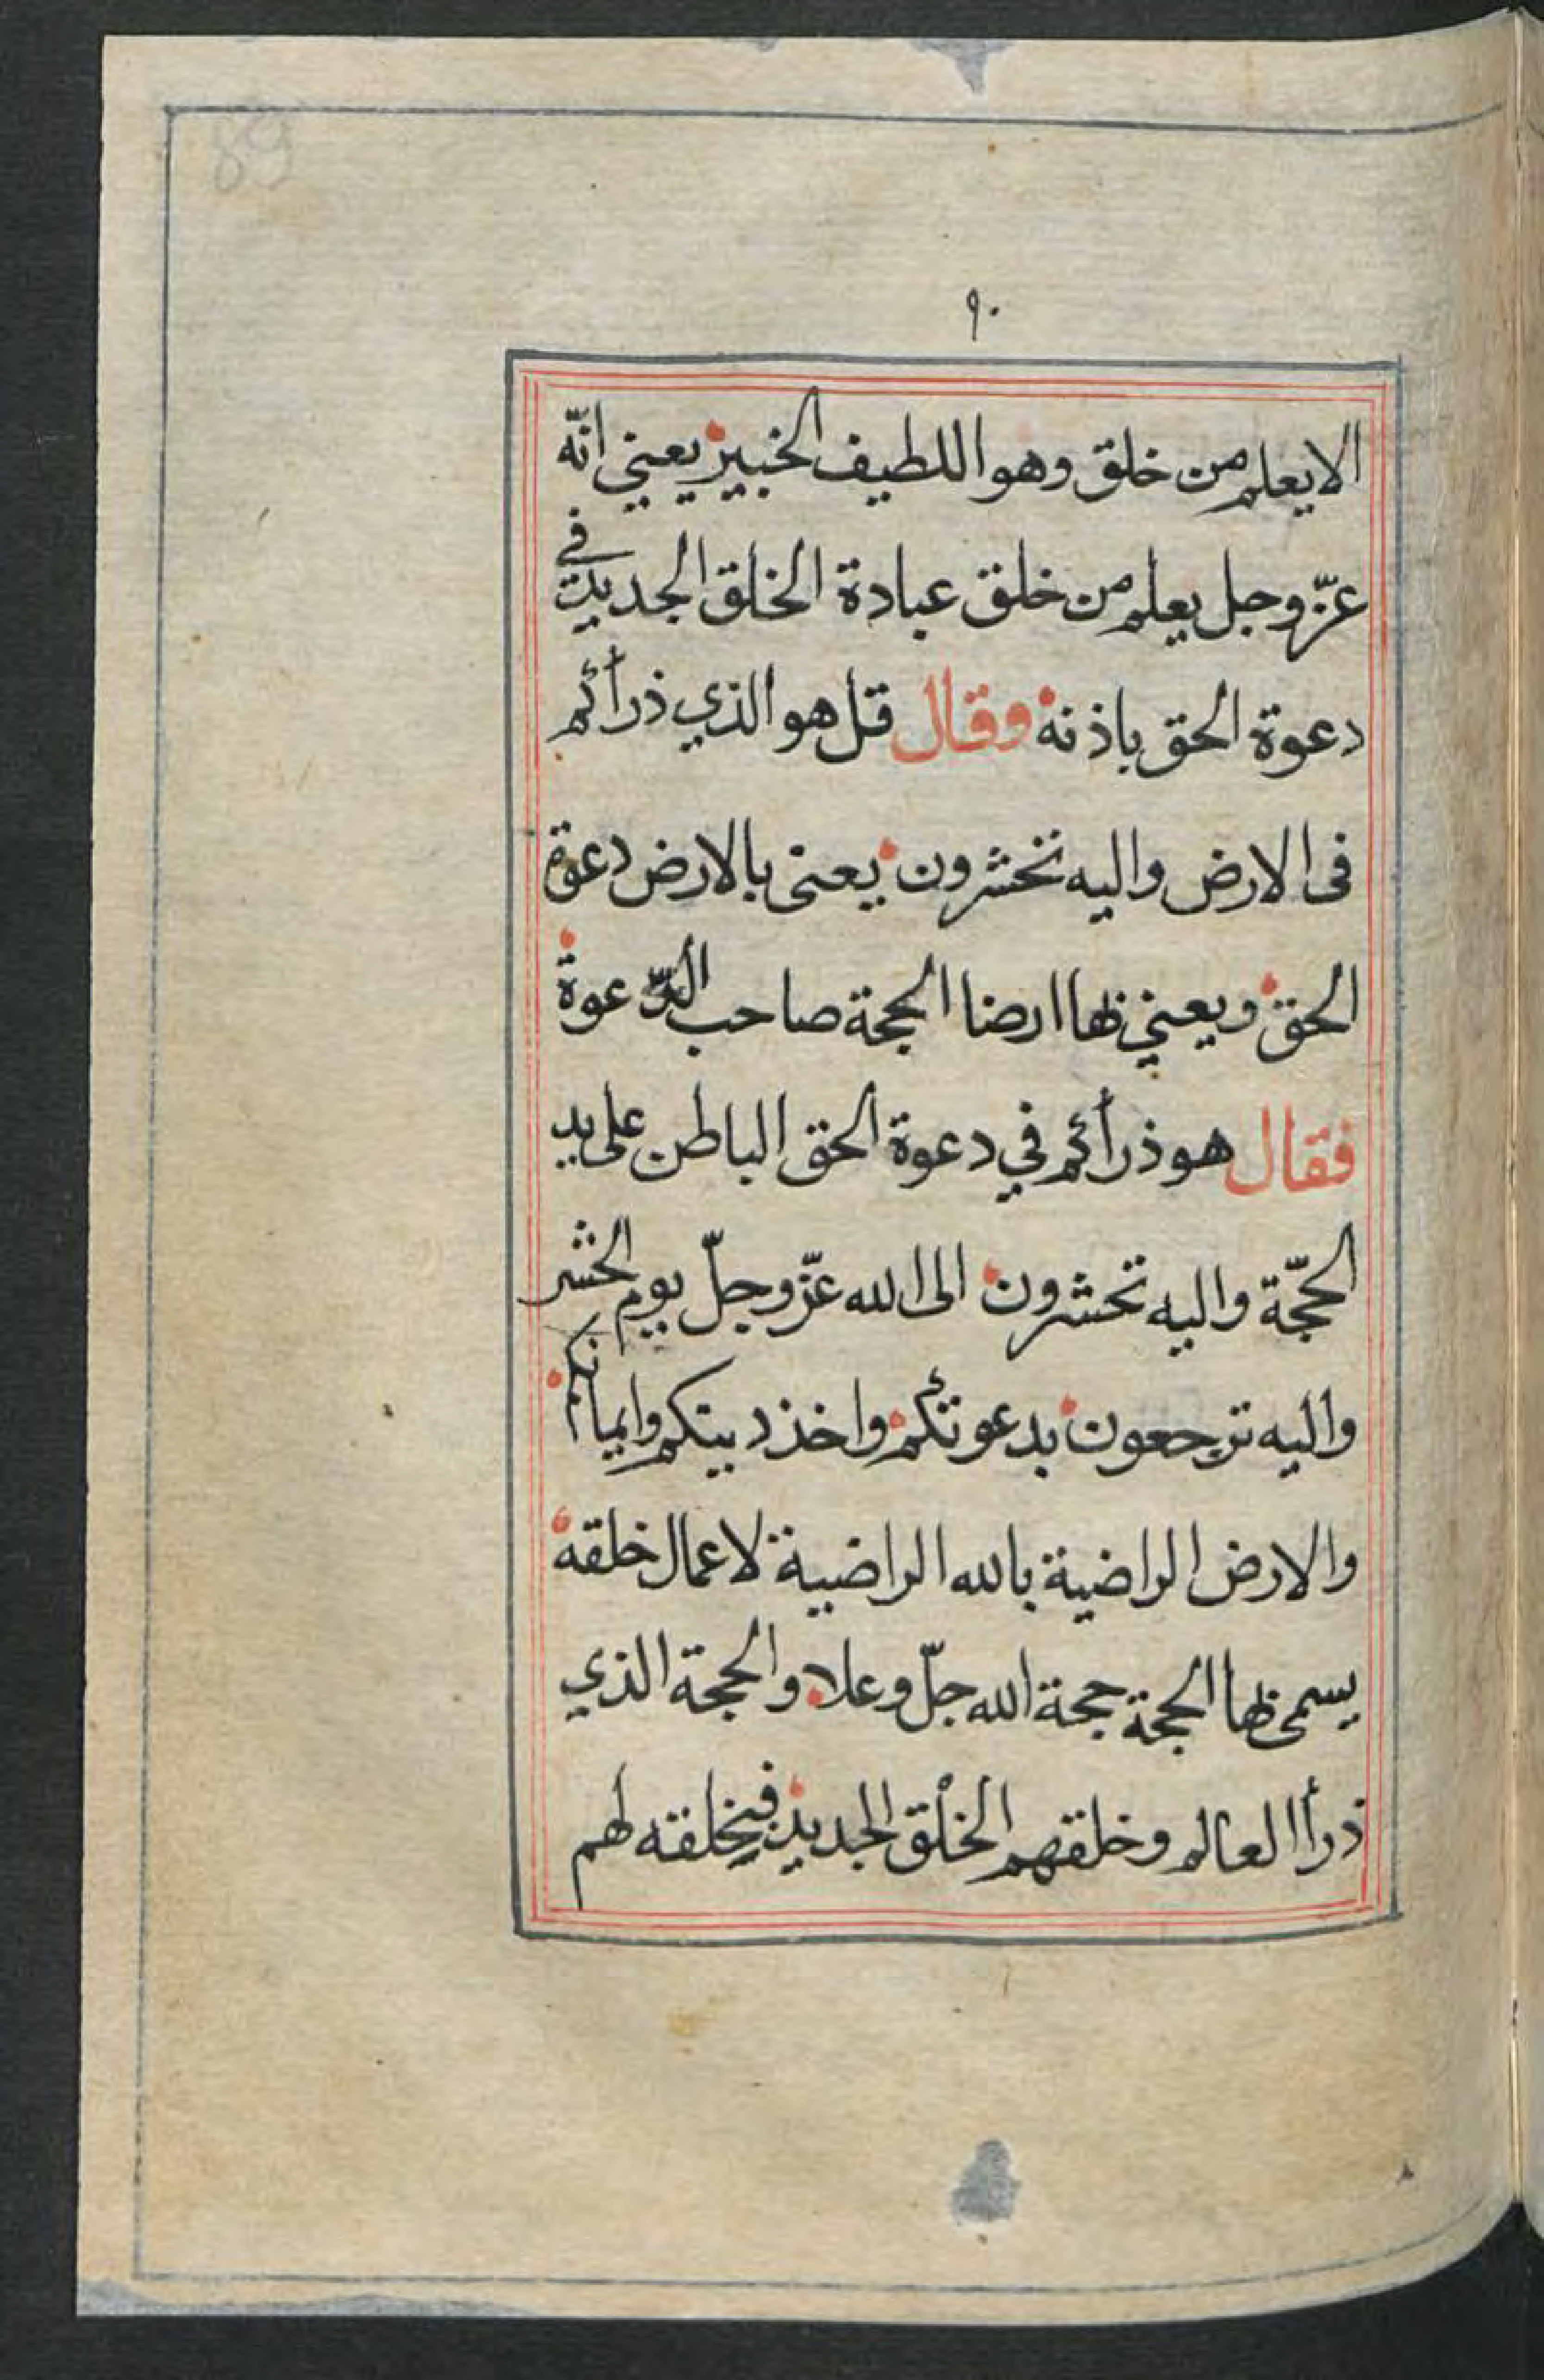 89
٩٠
الا يعلم من خلق وهو اللطيف الخبير يعني انّه
عزّ وجل يعلم من خلق عبادة الخلق الجديد في
دعوة الحق باذنه وقال قل هو الذي ذرأكم
فى الارض واليه تحشرون يعنى بالارض دعوة
الحق ويعني بها ارضا الحجة صاحب الدّعوة
فقال هو ذرأكم في دعوة الحق الباطن على يد
الحجّة واليه تحشرون الى الله عزّ وجلّ يوم الحشر
واليه ترجعون بدعوتكم واخذ دينكم وايمانكم
والارض الراضية بالله الراضية لاعمال خلقه
يسمى بها الحجة حجة الله جلّ وعلا والحجة الذي
ذرأ العالم وخلقهم الخلق الجديد فيخلقنه لهم